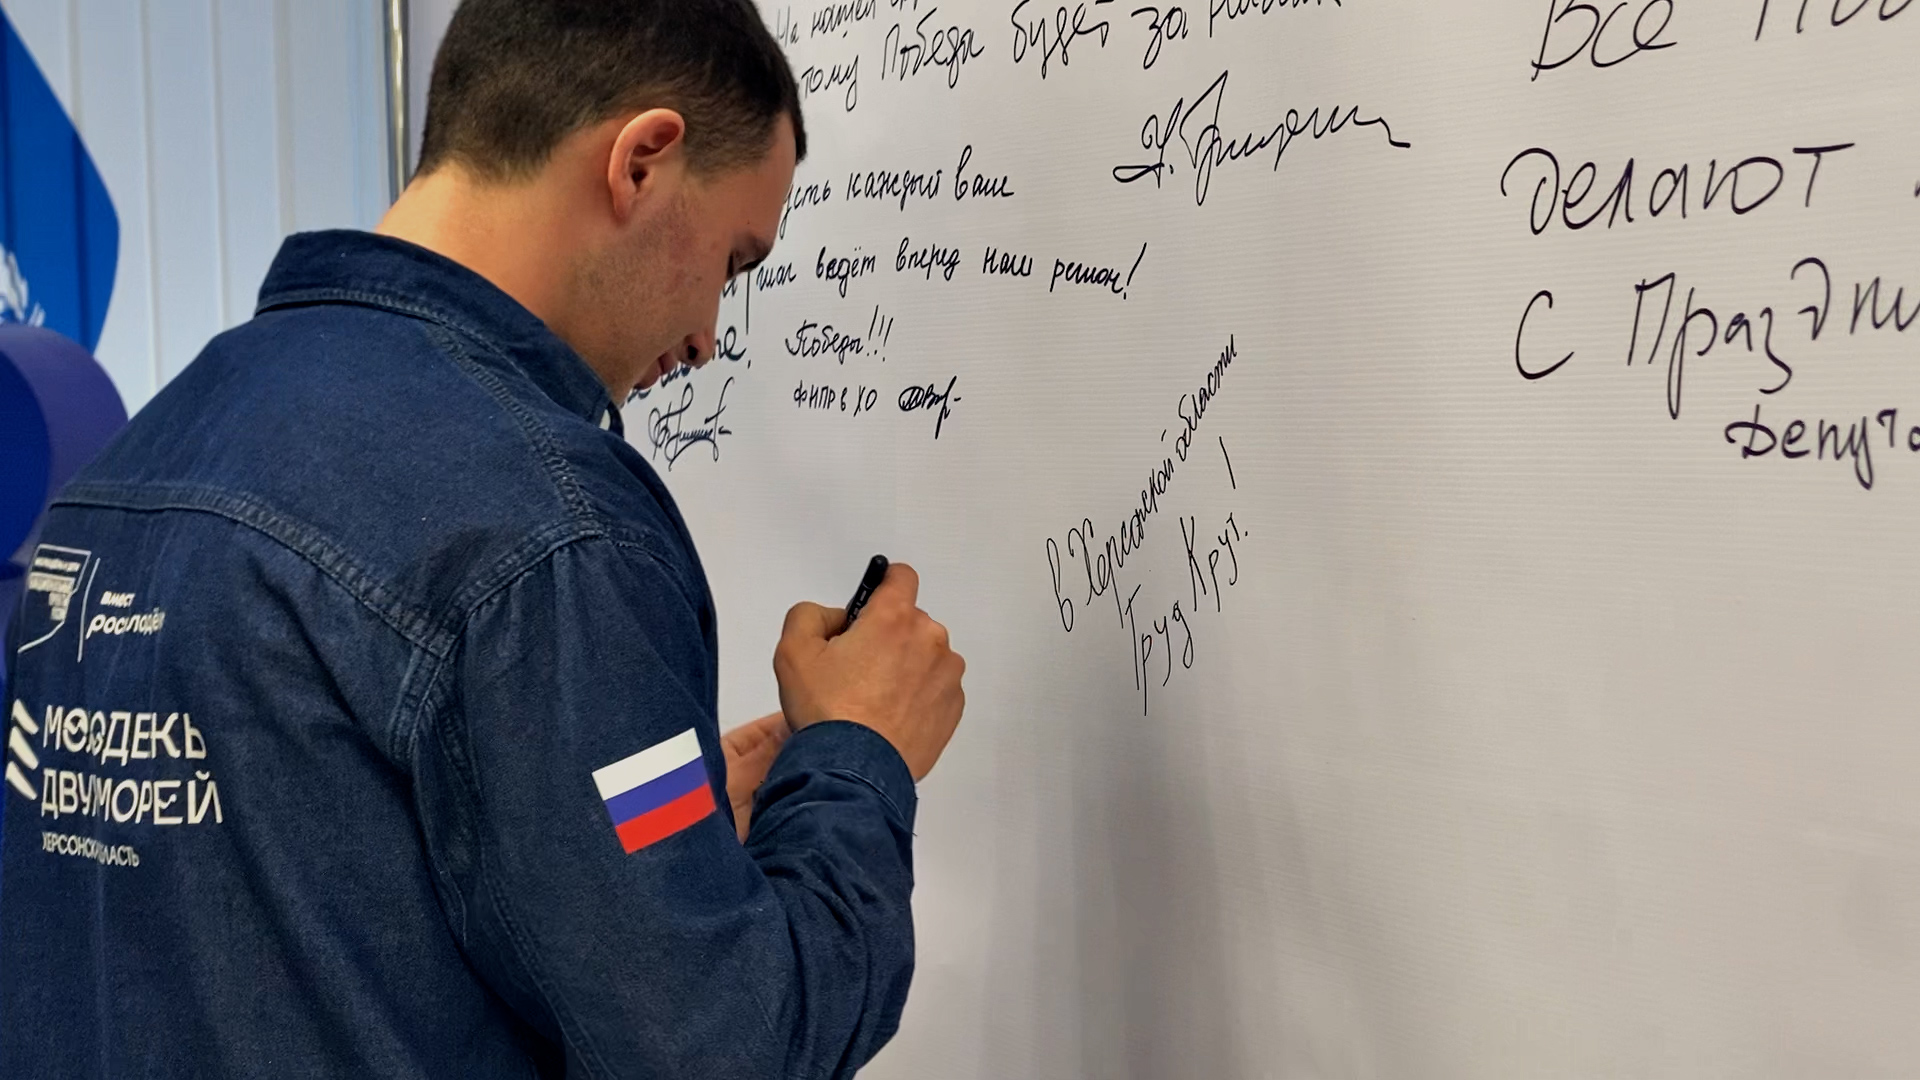 На нашей
тому Победа будет за нами
каждый ваш
шаг ведёт вперед наш регион!
Победы!!!
ФНПР в ХО
в Херсонской области
Труд Крут.
!
Все
делают
С Праздни
Депута
вместе
росмолодёж
МОЛОДЕЖЬ
ДВУХ МОРЕЙ
ХЕРСОНСКАЯ ОБЛАСТЬ